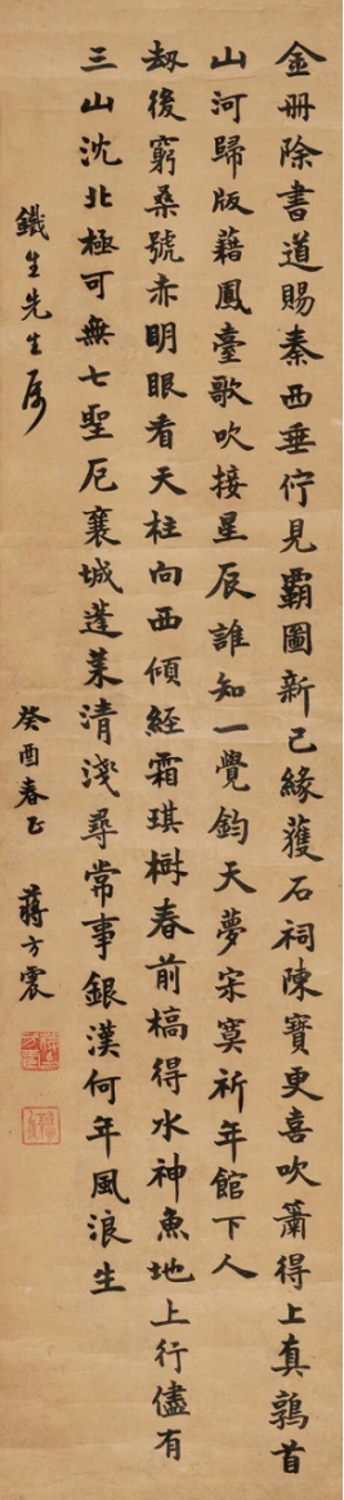 金册除書道賜秦西垂佇見霸圖新已緣獲石祠陳寶更喜吹簫得上真鶉首
山河歸版藉鳳臺歌吹接星辰誰知一覺鈞天夢寂寞祈年館下人
劫後窮桑號赤明眼看天柱向西傾經霜琪樹春前槁得水神魚地上行儘有
三山沈北極可無七聖厄襄城蓬萊清淺尋常事銀漢何年風浪生
鐵生先生屬
癸酉春正 蔣方震